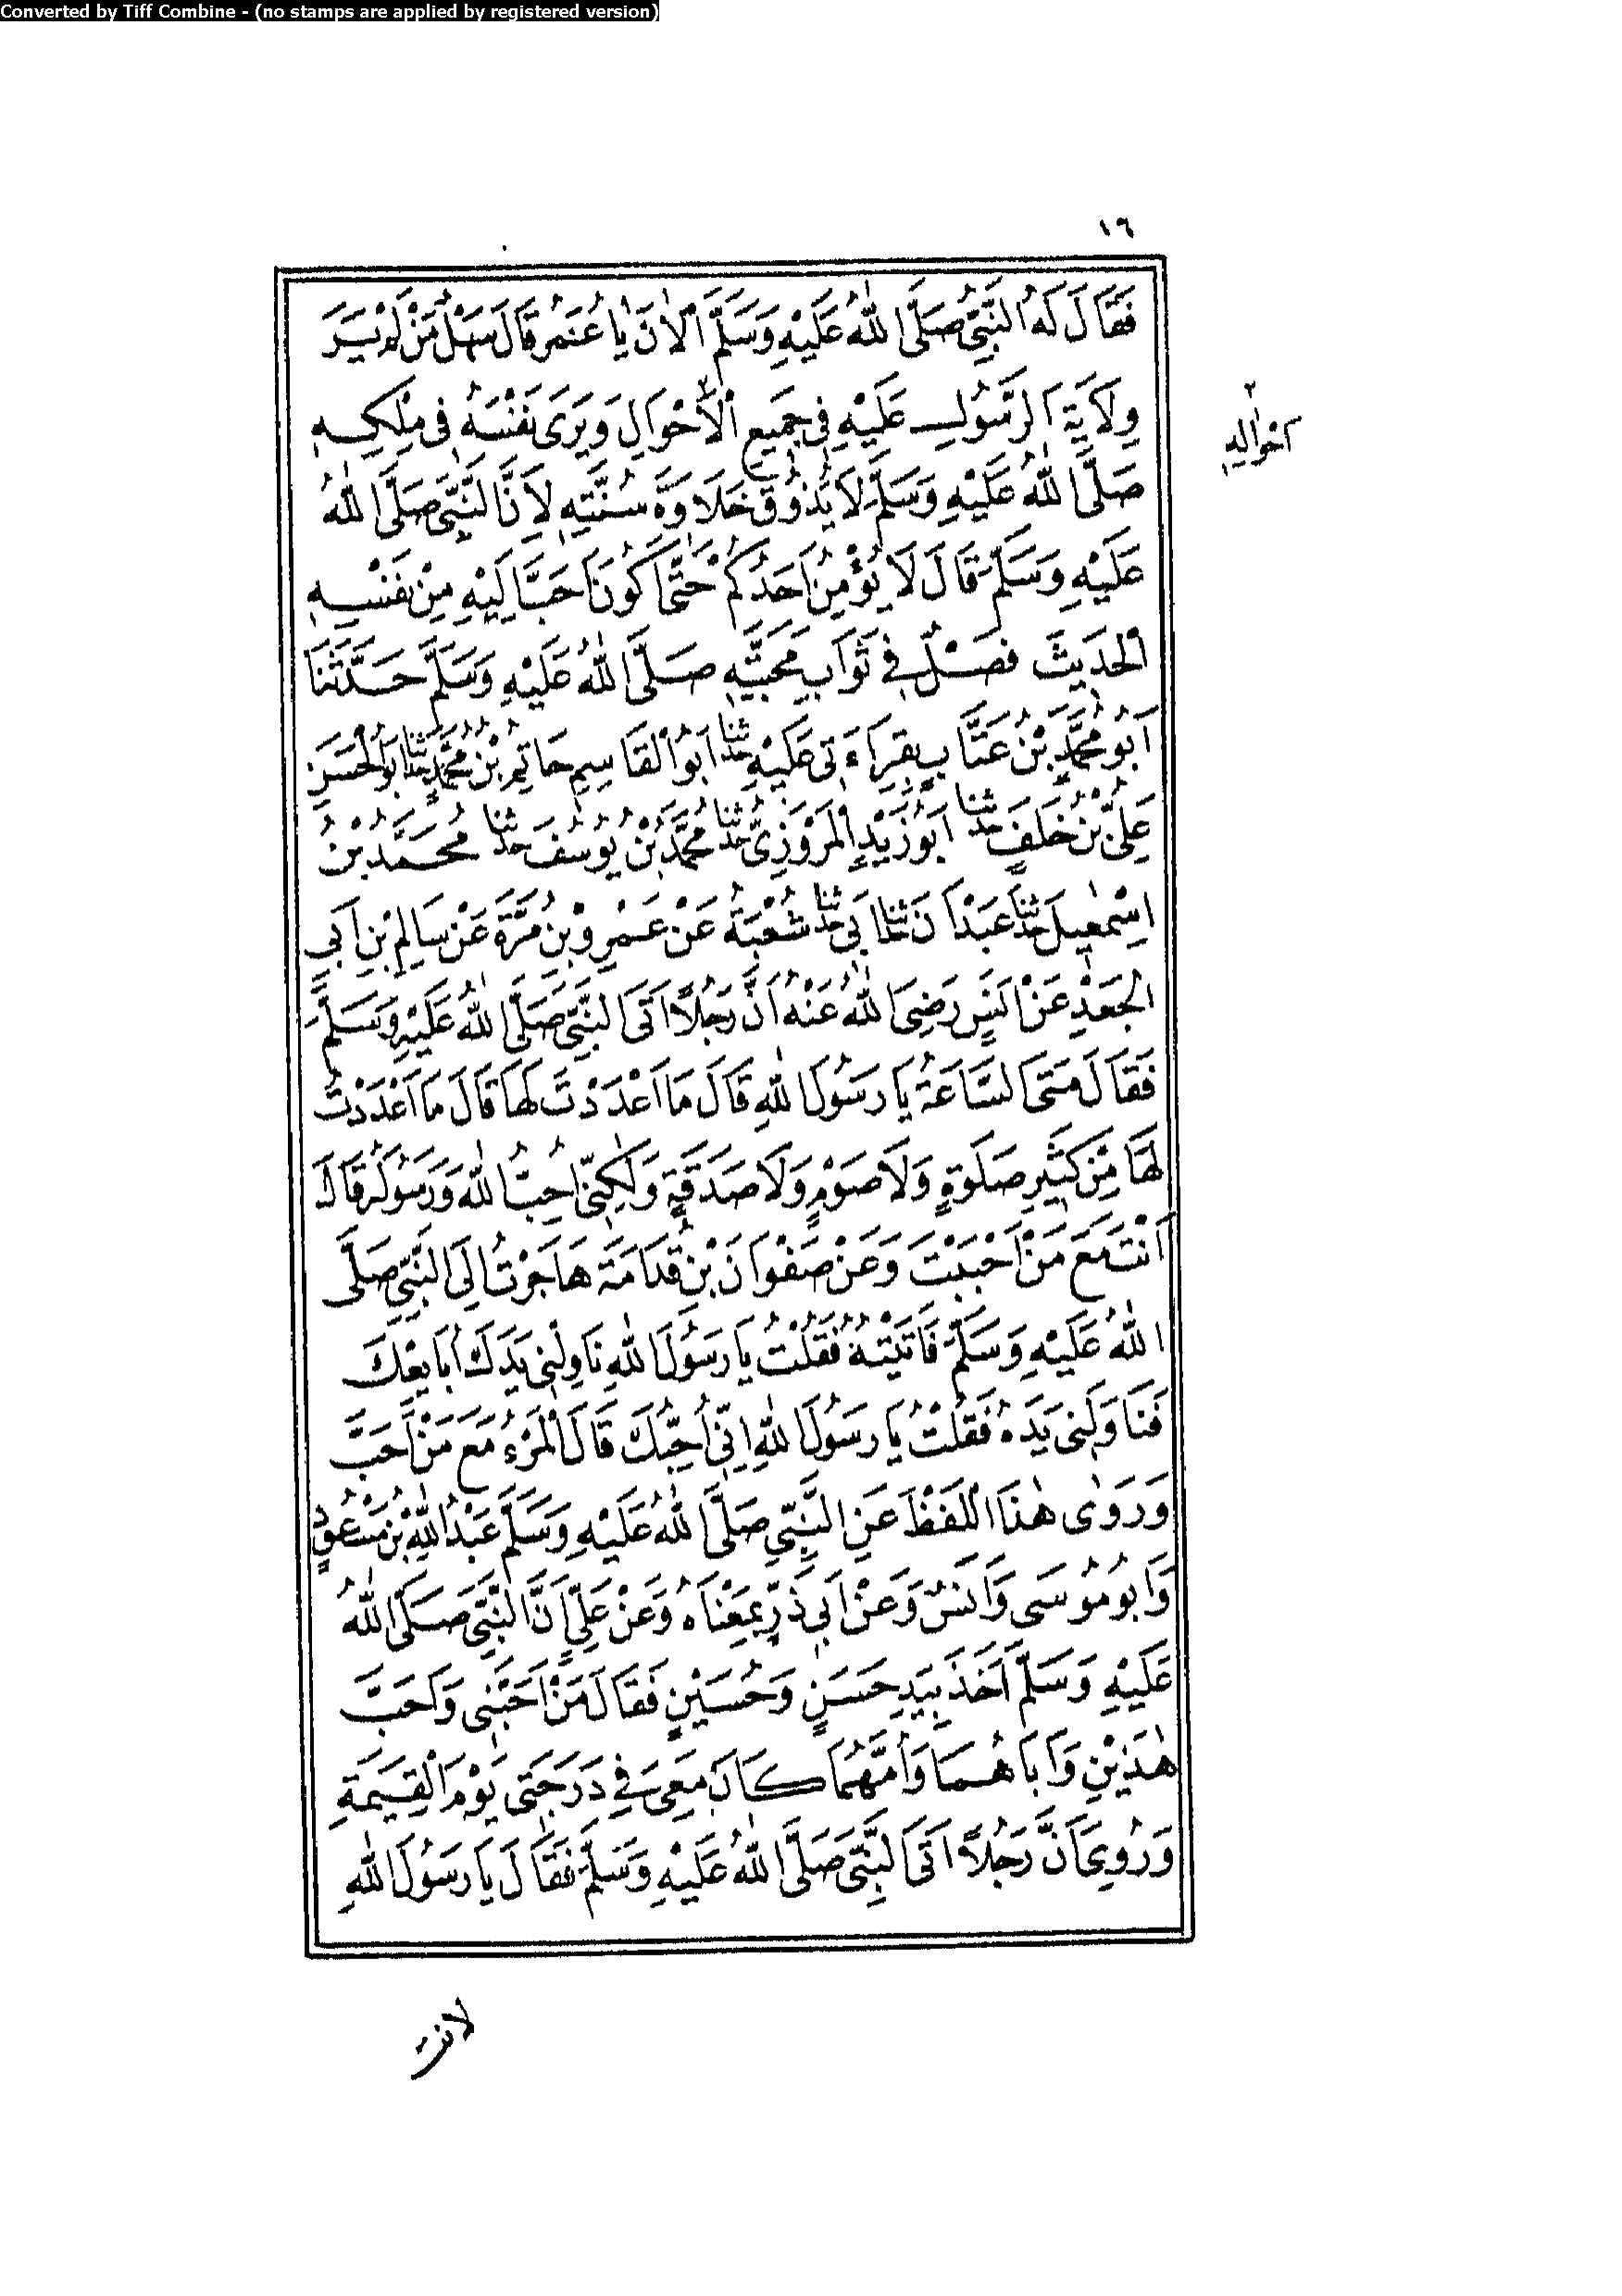 Converted by Tiff Combine - (no stamps are applied by registered version)
١٦
فَقَالَ لَهُ النَّبِيُّ صَلَّى اللّٰهُ عَلَيْهِ وَسَلَّمَ اَلْاٰنَ يَا عُمَرُ قَالَ سَهْلٌ مَنْ لَمْ يَرَ
وِلَايَةَ الرَّسُولِ عَلَيْهِ فِى جَمِيعِ الْاَحْوَالِ ٢ وَيَرَى نَفْسَهُ فِى مِلْكِهِ
٢ اَحْوَالِهِ
صَلَّى اللّٰهُ عَلَيْهِ وَسَلَّمَ لَا يَذُوقُ حَلَاوَةَ سُنَّتِهِ لِاَنَّ النَّبِىَّ صَلَّى اللّٰهُ
عَلَيْهِ وَسَلَّمَ قَالَ لَا يُؤْمِنُ اَحَدُكُمْ حَتَّى اَكُونَ اَحَبَّ اِلَيْهِ مِنْ نَفْسِهِ
الْحَدِيثَ فَصْلٌ فِى ثَوَابِ مَحَبَّتِهِ صَلَّى اللّٰهُ عَلَيْهِ وَسَلَّمَ حَدَّثَنَا
اَبُو مُحَمَّدِ بْنُ عَتَّابٍ بِقِرَاءَتِى عَلَيْهِ حَدَّثَنَا اَبُو الْقَاسِمِ حَاتِمُ بْنُ مُحَمَّدٍ حَدَّثَنَا اَبُو الْحَسَنِ
عَلِىُّ بْنُ خَلَفٍ حَدَّثَنَا اَبُو زَيْدٍ الْمَرْوَزِىُّ حَدَّثَنَا مُحَمَّدُ بْنُ يُوسُفَ حَدَّثَنَا مُحَمَّدُ بْنُ
اِسْمٰعِيلَ حَدَّثَنَا عَبْدَانُ حَدَّثَنَا اَبِى حَدَّثَنَا شُعْبَةُ عَنْ عَمْرِو بْنِ مُرَّةَ عَنْ سَالِمِ بْنِ اَبِى
الْجَعْدِ عَنْ اَنَسٍ رَضِىَ اللّٰهُ عَنْهُ اَنَّ رَجُلًا اَتَى النَّبِىَّ صَلَّى اللّٰهُ عَلَيْهِ وَسَلَّمَ
فَقَالَ مَتَى السَّاعَةُ يَا رَسُولَ اللّٰهِ قَالَ مَا اَعْدَدْتَ لَهَا قَالَ مَا اَعْدَدْتُ
لَهَا مِنْ كَثِيرِ صَلٰوةٍ وَلَا صَوْمٍ وَلَا صَدَقَةٍ وَلٰكِنِّى اُحِبُّ اللّٰهَ وَرَسُولَهُ قَالَ
اَنْتَ مَعَ مَنْ اَحْبَبْتَ وَعَنْ صَفْوَانَ بْنِ قُدَامَةَ هَاجَرْتُ اِلَى النَّبِىِّ صَلَّى
اللّٰهُ عَلَيْهِ وَسَلَّمَ فَاَتَيْتُهُ فَقُلْتُ يَا رَسُولَ اللّٰهِ نَاوِلْنِى يَدَكَ اُبَايِعْكَ
فَنَاوَلَنِى يَدَهُ فَقُلْتُ يَا رَسُولَ اللّٰهِ اِنِّى اُحِبُّكَ قَالَ الْمَرْءُ مَعَ مَنْ اَحَبَّ
وَرَوٰى هٰذَا اللَّفْظَ عَنِ النَّبِىِّ صَلَّى اللّٰهُ عَلَيْهِ وَسَلَّمَ عَبْدُ اللّٰهِ بْنُ مَسْعُودٍ
وَاَبُو مُوسَى وَاَنَسٌ وَعَنْ اَبِى ذَرٍّ بِمَعْنَاهُ وَعَنْ عَلِىٍّ اَنَّ النَّبِىَّ صَلَّى اللّٰهُ
عَلَيْهِ وَسَلَّمَ اَخَذَ بِيَدِ حَسَنٍ وَحُسَيْنٍ فَقَالَ مَنْ اَحَبَّنِى وَاَحَبَّ
هٰذَيْنِ وَاَبَاهُمَا وَاُمَّهُمَا كَانَ مَعِى فِى دَرَجَتِى يَوْمَ الْقِيٰمَةِ
وَرُوِىَ اَنَّ رَجُلًا اَتَى النَّبِىَّ صَلَّى اللّٰهُ عَلَيْهِ وَسَلَّمَ فَقَالَ يَا رَسُولَ اللّٰهِ
لانت